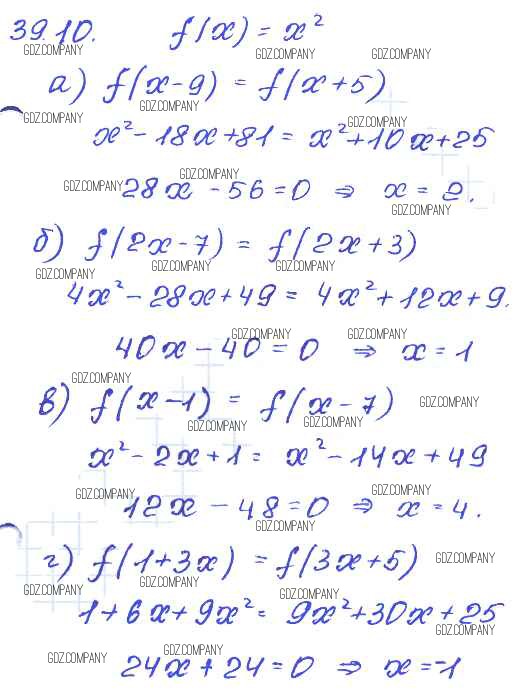 39.10. f(x) = x²
GDZ.COMPANY GDZ.COMPANY GDZ.COMPANY
а) f(x-9) = f(x+5)
GDZ.COMPANY
GDZ.COMPANY GDZ.COMPANY
x² - 18x + 81 = x² + 10x + 25
GDZ.COMPANY
GDZ.COMPANY 28x - 56 = 0 ⇒ x = 2.
GDZ.COMPANY
б) f(2x-7) = f(2x+3)
GDZ.COMPANY GDZ.COMPANY GDZ.COMPANY
4x² - 28x + 49 = 4x² + 12x + 9.
GDZ.COMPANY GDZ.COMPANY
40x - 40 = 0 ⇒ x = 1
GDZ.COMPANY
в) f(x-1) = f(x-7) GDZ.COMPANY
GDZ.COMPANY GDZ.COMPANY
x² - 2x + 1 = x² - 14x + 49
GDZ.COMPANY GDZ.COMPANY
12x - 48 = 0 ⇒ x = 4.
GDZ.COMPANY
г) f(1+3x) = f(3x+5) GDZ.COMPANY
GDZ.COMPANY GDZ.COMPANY GDZ.COMPANY
1 + 6x + 9x² = 9x² + 30x + 25
GDZ.COMPANY
GDZ.COMPANY GDZ.COMPANY
24x + 24 = 0 ⇒ x = -1